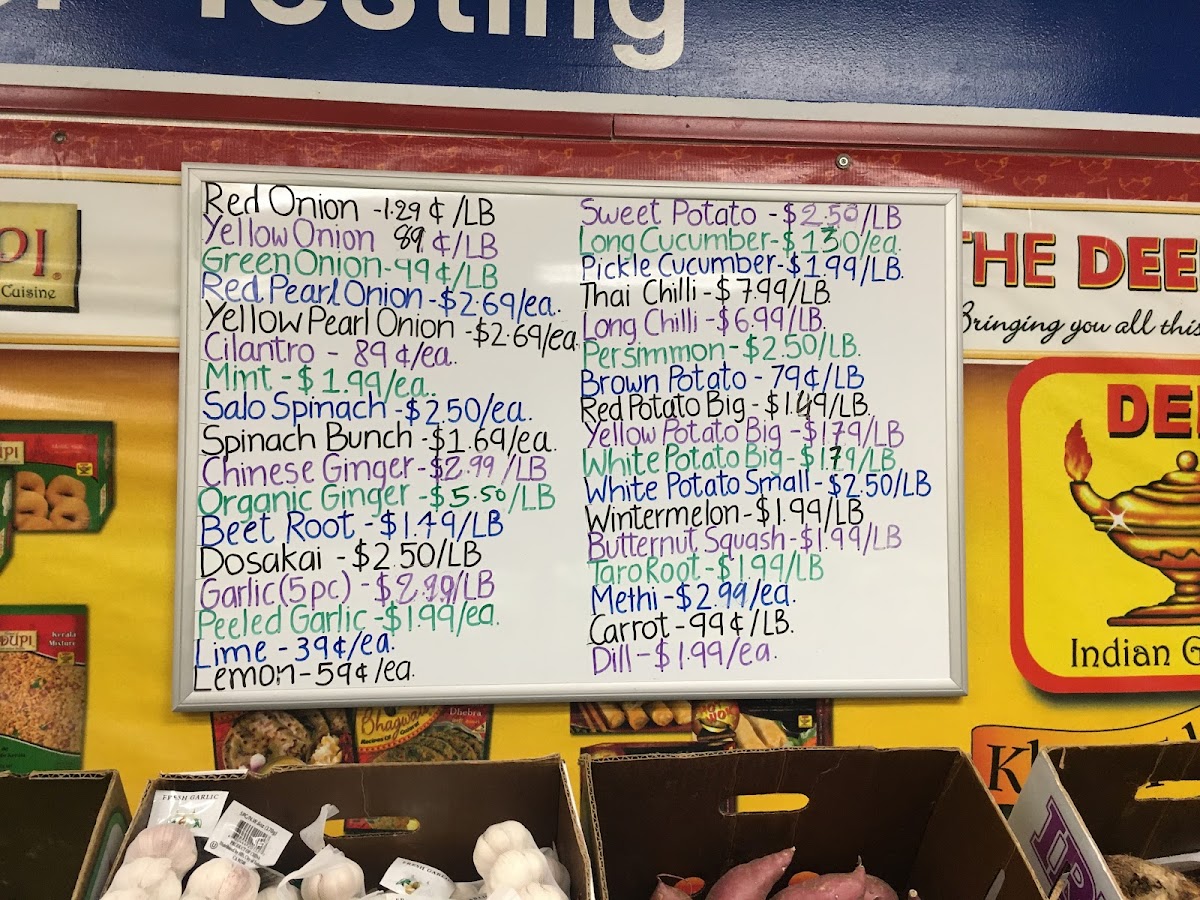 Testing
UPI®
Cuisine
Red Onion -1.29 ¢ /LB
Yellow Onion 89 ¢/LB
Green Onion-99¢/LB
Red Pearl Onion-$2.69/ea.
Yellow Pearl Onion -$2.69/ea.
Cilantro - 89 ¢/ea.
Mint -$ 1.99/ea.
Salo Spinach -$2.50/ea.
Spinach Bunch -$1.69/ea.
Chinese Ginger-$2.99 /LB
Organic Ginger -$5.50/LB
Beet Root -$1.49/LB
Dosakai -$2.50/LB
Garlic (5pc) -$2.99/LB
Peeled Garlic-$1.99/ea.
Lime - 39¢/ea.
Lemon-59¢/ea.
Sweet Potato -$2.50/LB
Long Cucumber-$130/ea.
Pickle Cucumber-$1.99/LB.
Thai Chilli -$7.99/LB.
Long Chilli -$6.99/LB.
Persimmon-$2.50/LB.
Brown Potato - 79¢/LB
Red Potato Big -$1.49/LB.
Yellow Potato Big -$179/LB
White Potato Big-$1.79/LB
White Potato Small-$2.50/LB
Wintermelon-$1.99/LB
Butternut Squash-$1.99/LB
Taro Root -$1.99/LB
Methi-$2.99/ea.
Carrot -99¢/LB.
Dill-$1.99/ea.
THE DEE
Bringing you all this
DE
Indian G
UPI
DUPI
Kerala
Mixture
Bhagwati
Dhebra
FRESH GARLIC
FRESH GARLIC